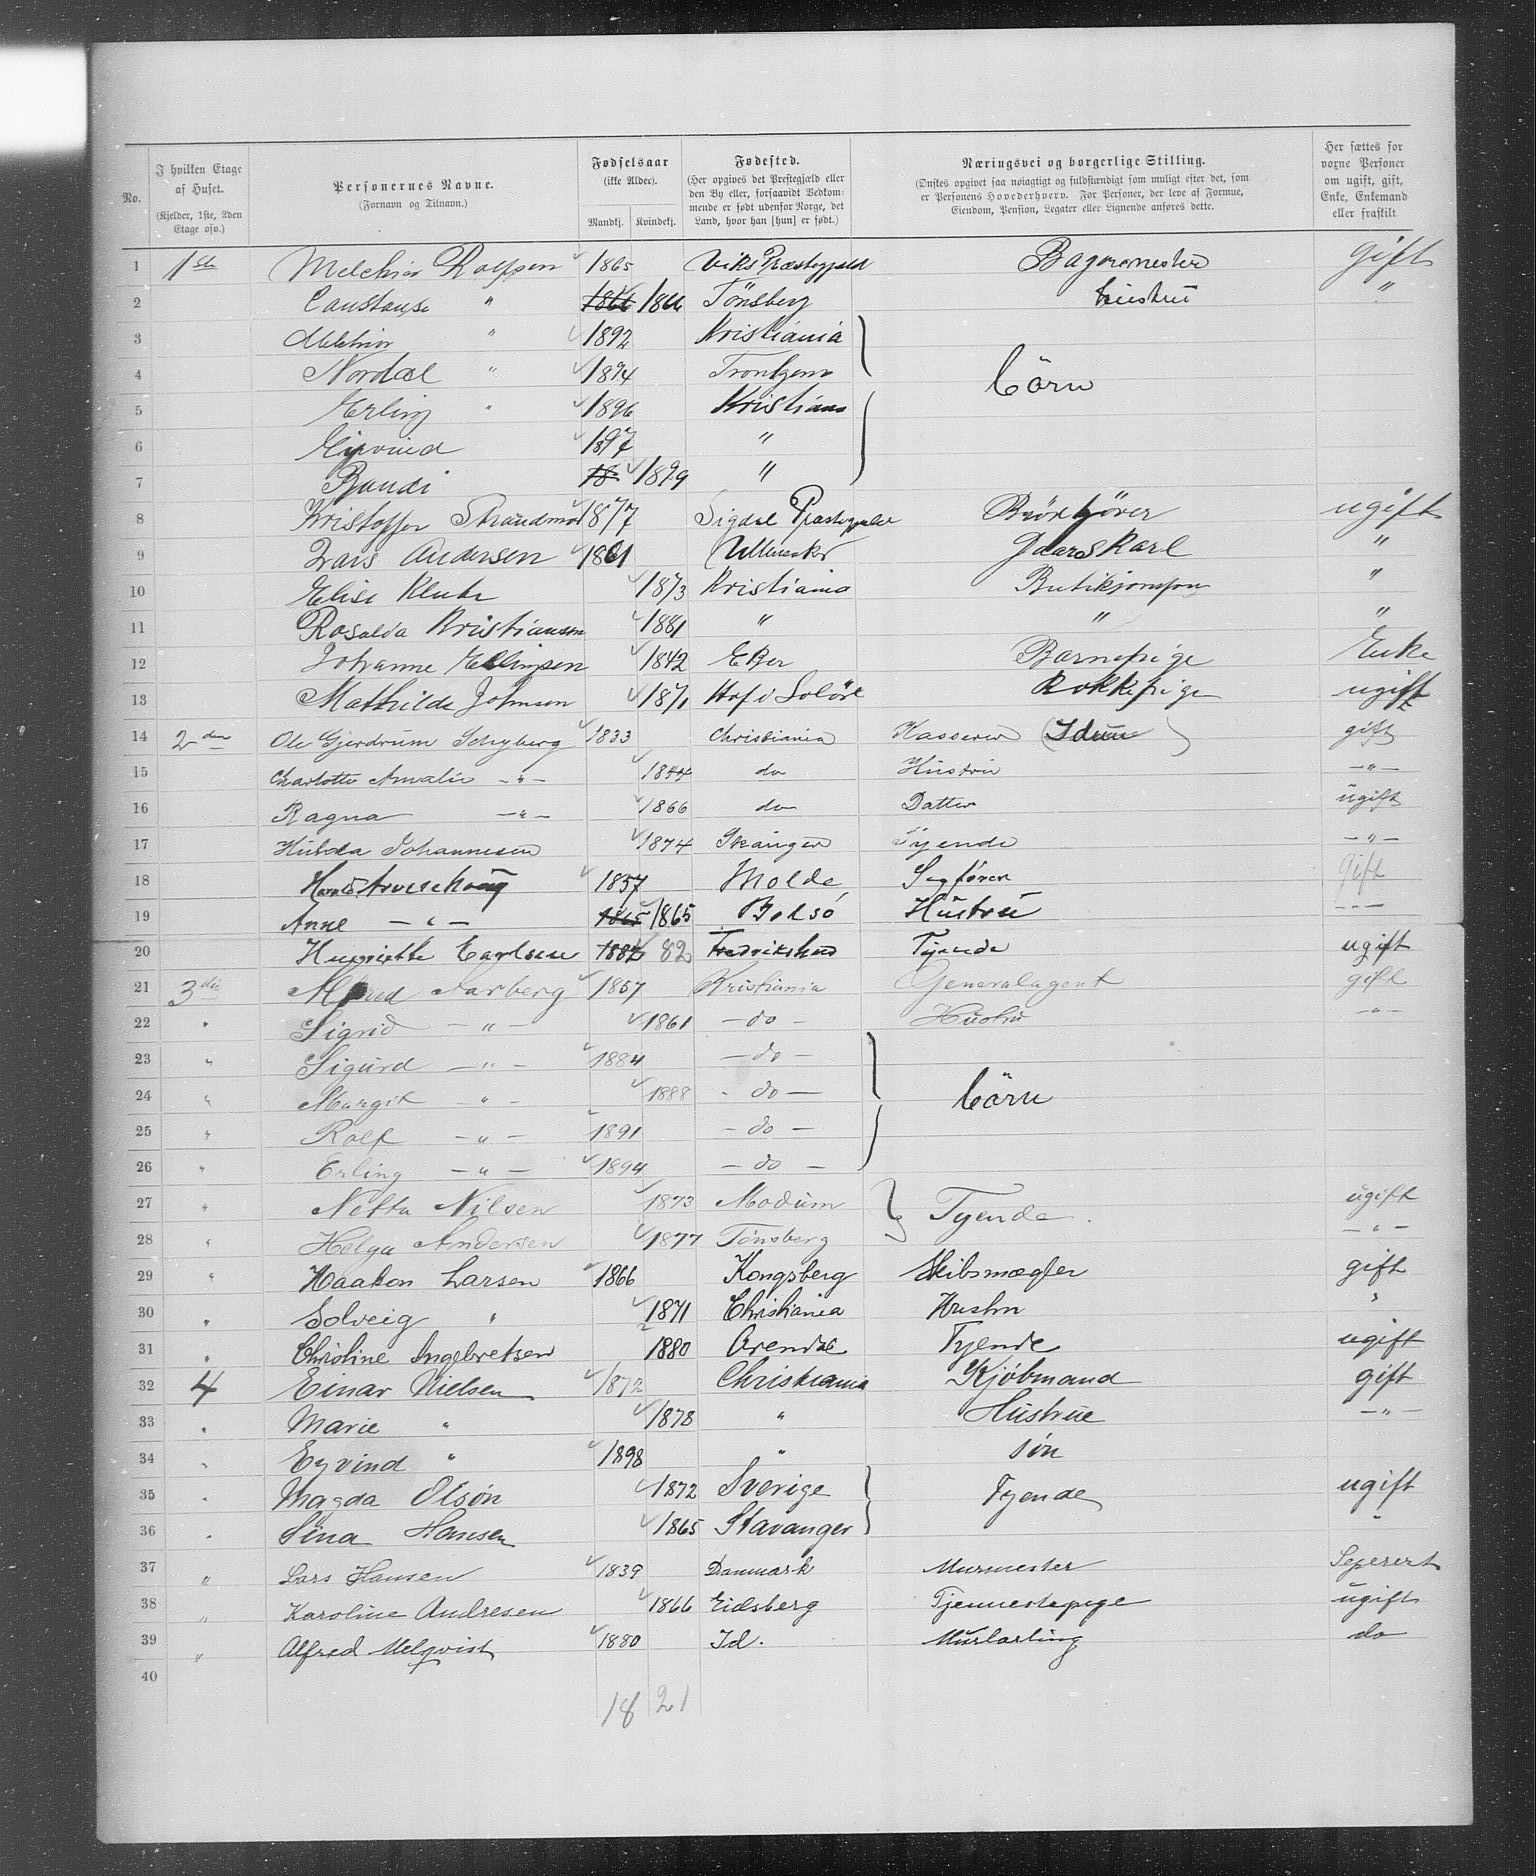 No.
I hvilken Etage af Huset. (Kjelder, 1ste, 2den Etage osv.)
Personernes Navne. (Fornavn og Tilnavn.)
Fødselsaar (ikke Alder). Mandkj. Kvindekj.
Fødested. (Her opgives det Prestegjæld eller den By eller, forsaavidt Vedkommende er født udenfor Norge, det Land, hvor han [hun] er født.)
Næringsvei og borgerlige Stilling. (Ønskes opgivet saa nøiagtigt og fuldstændigt som muligt efter det, som er Personens Hovederhverv. For Personer, der leve af Formue, Eiendom, Pension, Legater eller Lignende anføres dette.
Her sættes for voxne Personer om ugift, gift, Enke, Enkemand eller fraskilt
1 1ste Melchior Rolfsen 1865 Viks Præstegjeld Bagermester gift
2 Constanse " 1866 1866 Tönsberg Hustru "
3 Melchior " 1892 Kristiania
4 Nordal " 1894 Trontjem Börn
5 Erling " 1896 Kristiania
6 Eyvind 1897 "
7 Randi 18 1899 "
8 Kristoffer Strandmo 1877 Sigdal Præstegjeld Brödkjörer ugift
9 Lars Andersen 1861 Ullensaker Gaardskarl "
10 Elise 1873 Kristiania Butikjomfru "
11 Rosalda Kristiansen 1881 " " "
12 Johanne Ellingsen 1842 Eker Barnepige Enke
13 Mathilde Johnsen 1871 Hof i Solör Kokkepige ugift
14 2den Ole Gjerdrum Schyberg 1833 Christiania Kasserer (Idun) gift
15 Charlotte Amalie —"— 1844 do Hustru —"—
16 Ragna —"— 1866 do Datter ugift
17 Hulda Johannesen 1874 Skånger Tyende —"—
18 1857 Molde Sagförer Gift
19 Anne —"— 1865 1865 Bolsö Hustru —"—
20 Henriette Carlsen 1882 82 Fredrikshald Tyende ugift
21 3die Alfred Aarberg 1857 Kristiania Generalagent gift
22 " Sigrid —"— 1861 —do— Hustru —"—
23 " Sigurd —"— 1884 —do—
24 " Margit —"— 1888 —do— Börn
25 " Rolf —"— 1891 —do—
26 " Erling —"— 1894 —do—
27 " Netta Nilsen 1873 Modum Tyende ugift
28 " Helga Andersen 1877 Tönsberg —"—
29 " Haakon Larsen 1866 Kongsberg Skibsmægler gift
30 " Solveig " 1871 Christiania Hustru "
31 " Christine Ingebretsen 1880 Arendal Tyende ugift
32 4 Einar Nielsen 1872 Christiania Kjöbmand gift
33 " Marie " 1878 " Hustrue —"—
34 " Eyvind " 1898 " sön
35 " Magda Olsön 1872 Sverige Tyende ugift
36 " Sina Hansen 1865 Stavanger "
37 " Lars Hansen 1839 Danmark Murmester Seperert
38 " Karoline Andresen 1866 Eidsberg Tjennestepige ugift
39 " Alfred Melqvist 1880 Id. Murlærling do
40
18 21